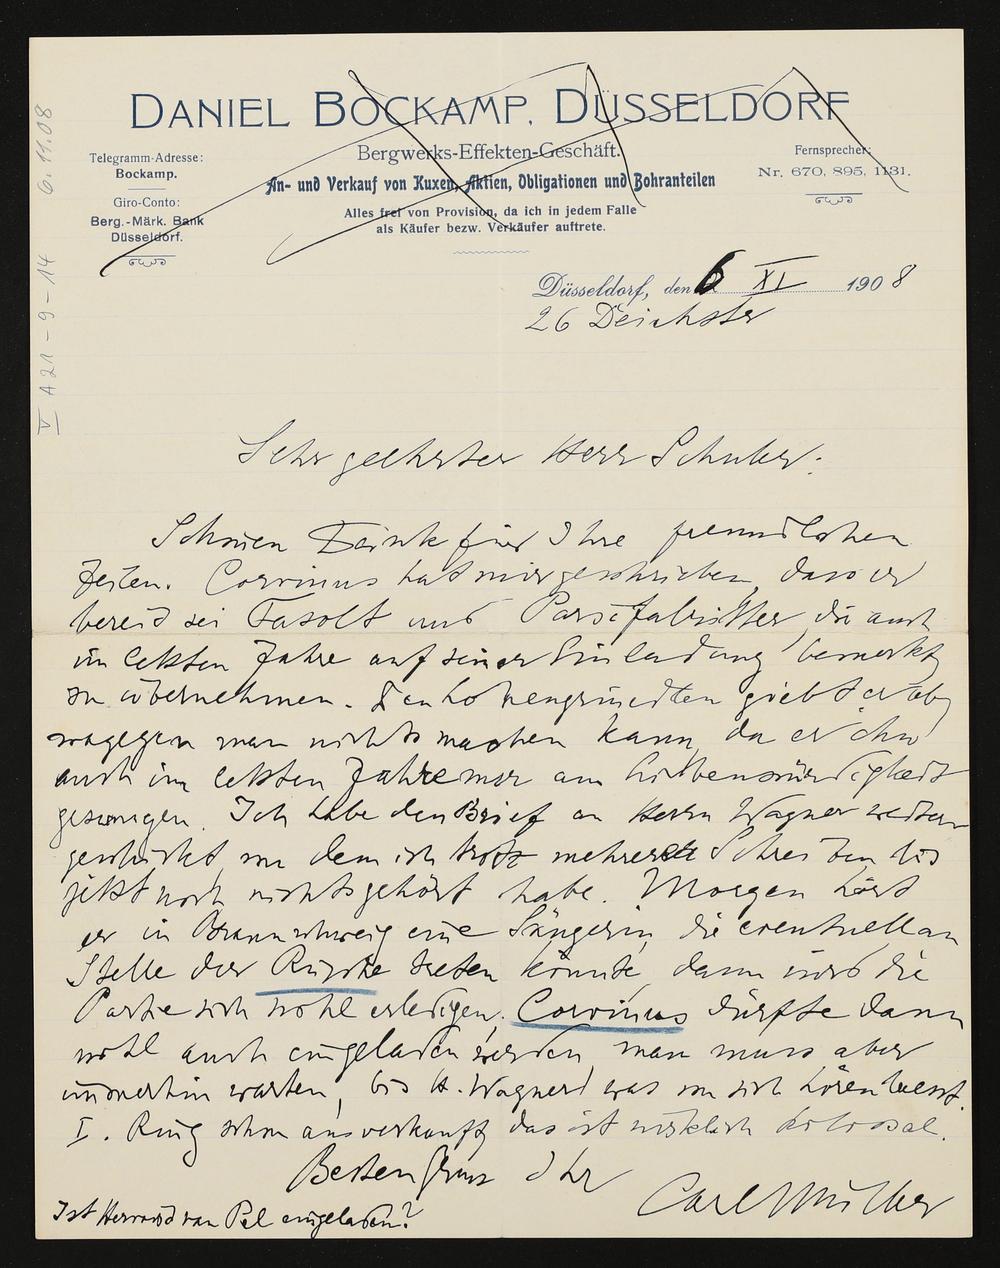 DANIEL BOCKAMP, DÜSSELDORF
Bergwerks-Effekten-Geschäft.
An- und Verkauf von Kuxen, Aktien, Obligationen und Bohranteilen
Alles frei von Provision, da ich in jedem Falle
als Käufer bezw. Verkäufer auftrete.
Telegramm-Adresse:
Bockamp.
Giro-Conto:
Berg.-Märk. Bank
Düsseldorf.
Fernsprecher:
Nr. 670, 895, 1131.
V A 21 - 9 - 14 6.11.08
Düsseldorf, den 6 XI 1908
26 Deichstr
Sehr geehrter Herr Schuler:
Schönen Dank für Ihre freundlichen
Zeilen. Corvinus hat mir geschrieben, dass er
bereid sei Fasolt und Parsifalritter, die auch
im letzten Jahre auf seiner Einladung bemerkt,
zu übernehmen. Den giebt er ab,
wogegen man nichts machen kann, da er ihn
auch im letzten Jahre nur aus Liebenswürdigkeit
gesungen. Ich habe den Brief an Herrn Wagner weiter
geschickt, von dem ich trotz mehrerer Schreiben bis
jetzt noch nichts gehört habe. Morgen hört
er in Braunschweig eine Sängerin, die eventuell an
Stelle der Rüsche treten könnte, dann wird die
Partie sich wohl erledigen. Corvinus dürfte dann
wohl auch eingeladen werden, man muss aber
immerhin warten, bis H. Wagner was von sich hören laesst.
I. Ring schon ausverkauft, das ist wirklich kolossal.
Besten Gruss Ihr
Carl Müller
Ist Herr van Pel eingeladen?